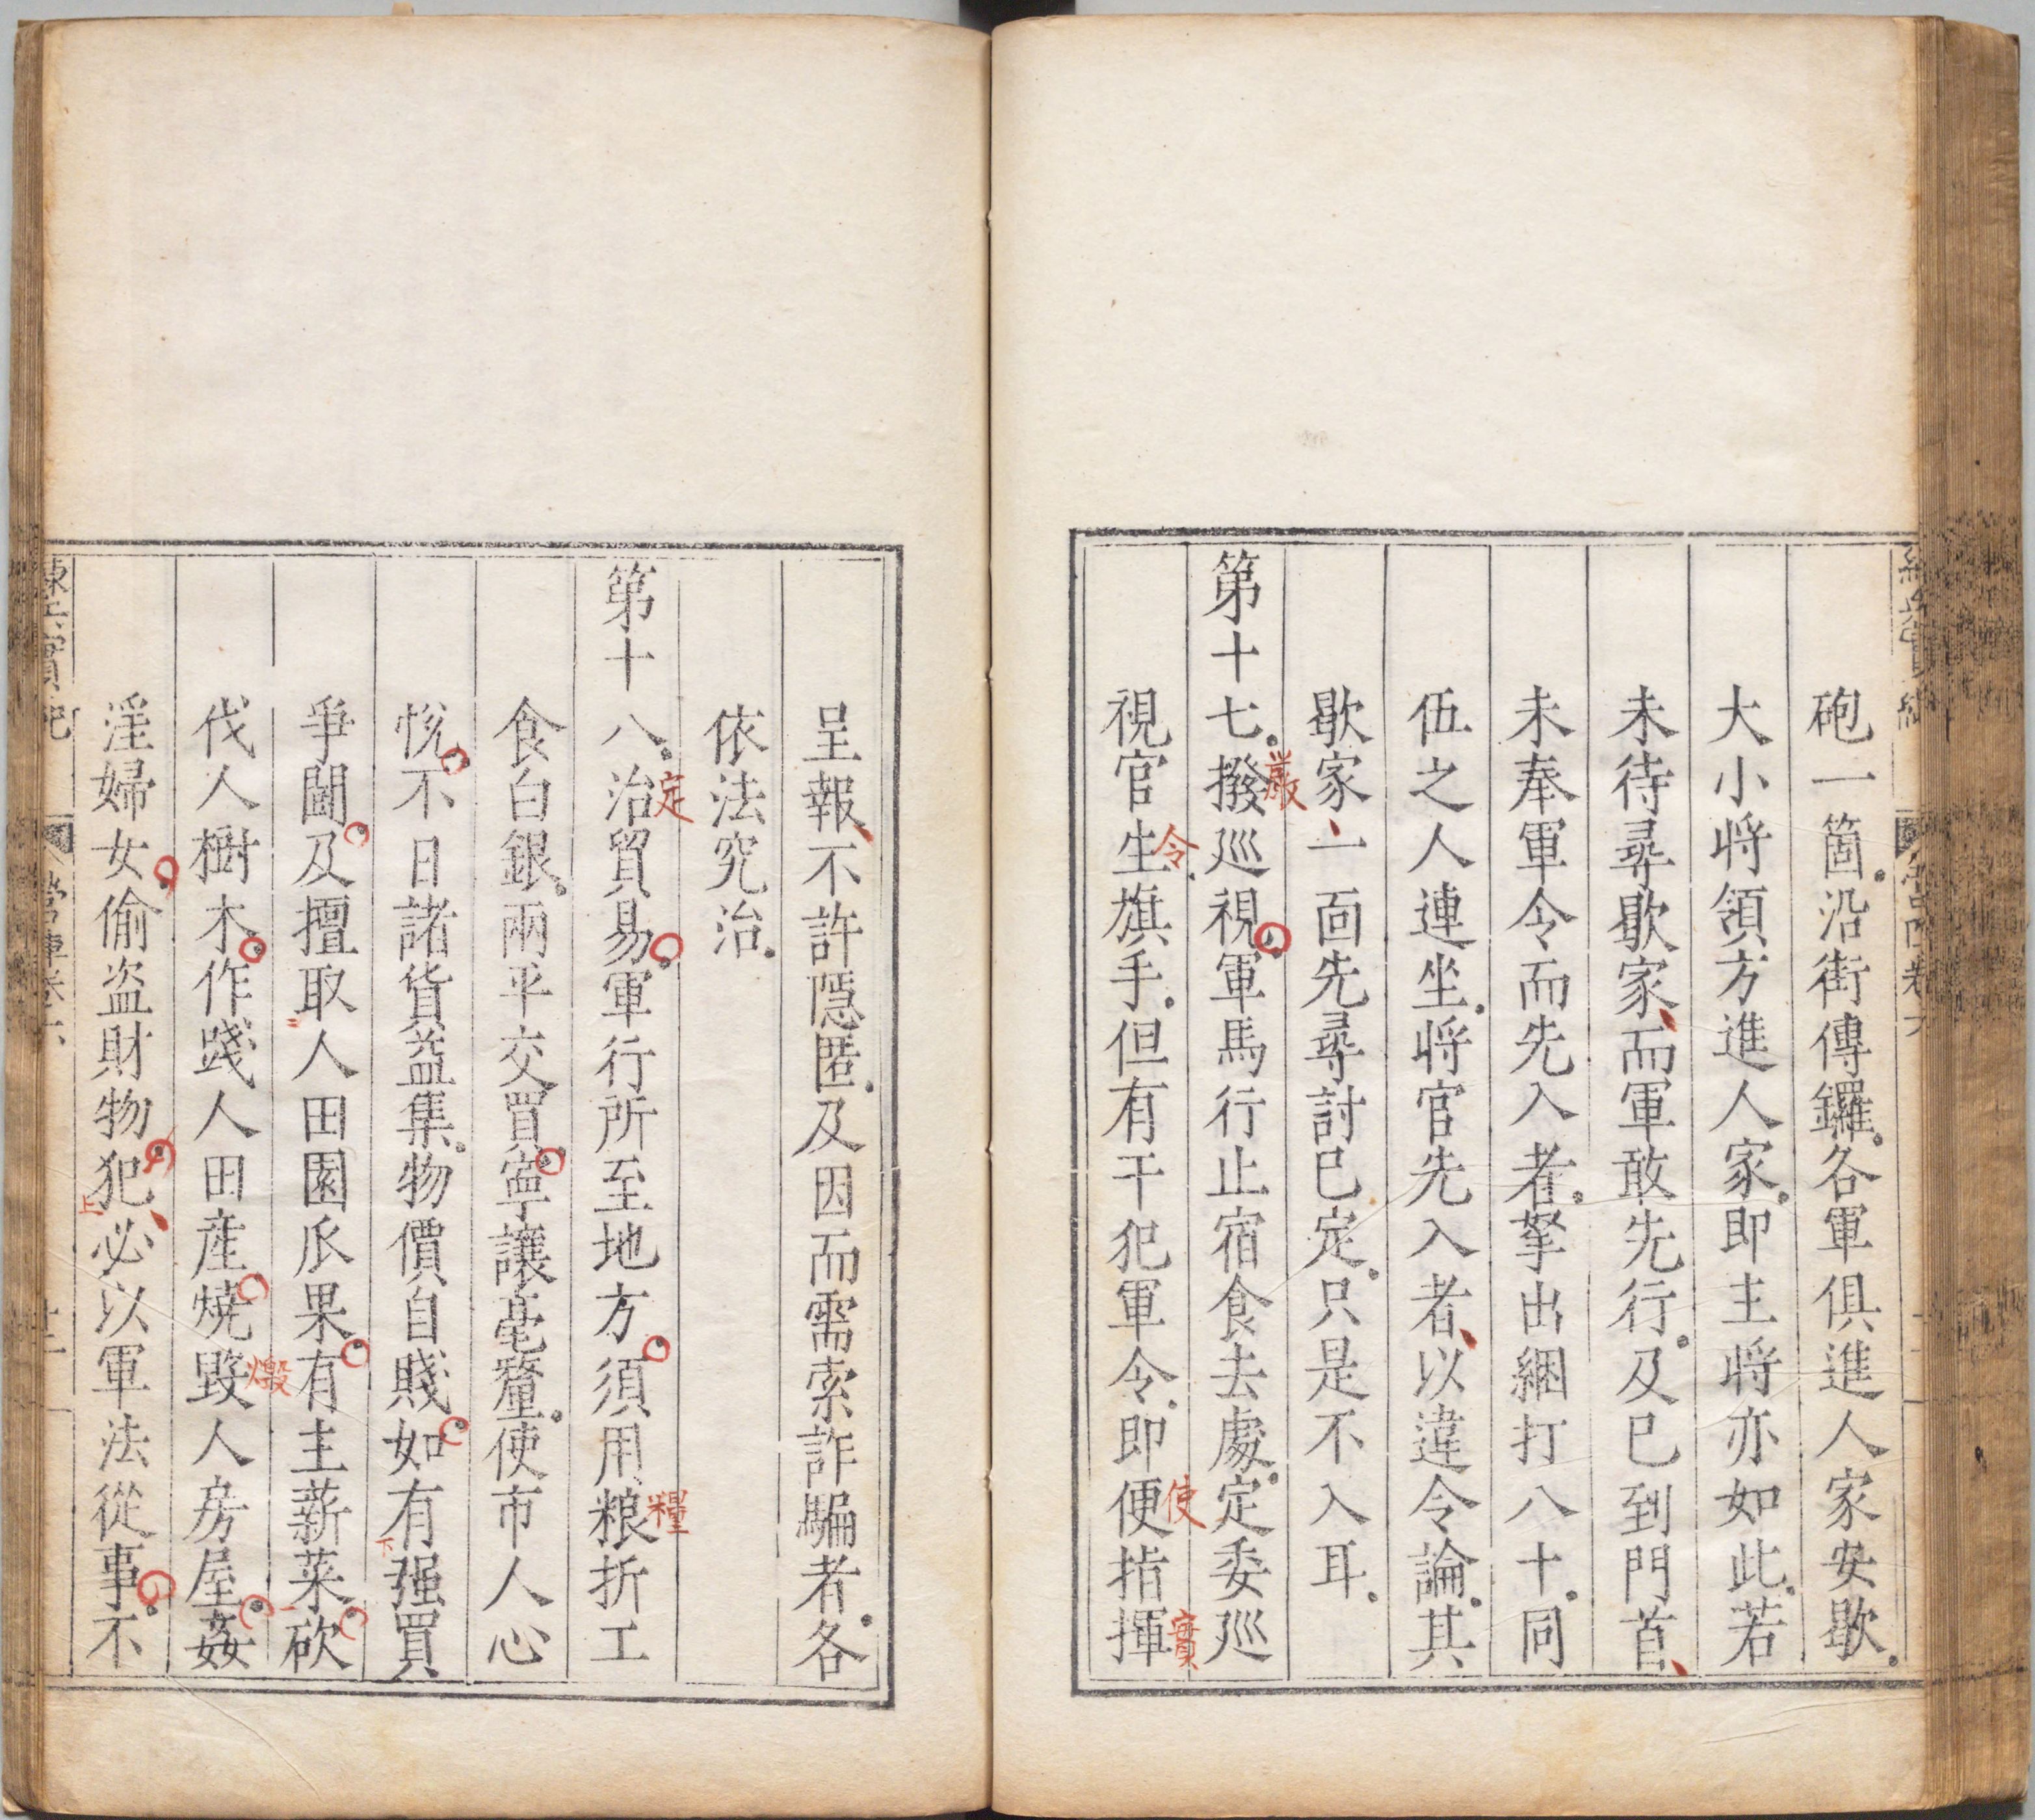 砲一箇沿街傳鑼各軍俱進人家安歇
大小將領方進人家即主將亦如此若
未待尋歇家而軍敢先行及已到門首
未奉軍令而先入者拏出綑打八十同
伍之人連坐將官先入者以違令論其
歇家一面先尋討已定只是不入耳
嚴
第十七撥巡視軍馬行止宿食去處定委巡
令
使
實
視官生旗手但有干犯軍令即便指揮
呈報不許隱匿及因而需索詐騙者各
依法究治
定
糧
第十八治貿易軍行所至地方須用粮折工
食白銀兩平交買寧讓毫釐使市人心
悅不日諸貨益集物價自賤如有强買
下
爭鬪及擅取人田園瓜果有主薪菜砍
燬
伐人樹木作踐人田產燒毀人房屋姦
淫婦女偷盗財物犯必以軍法從事不
上